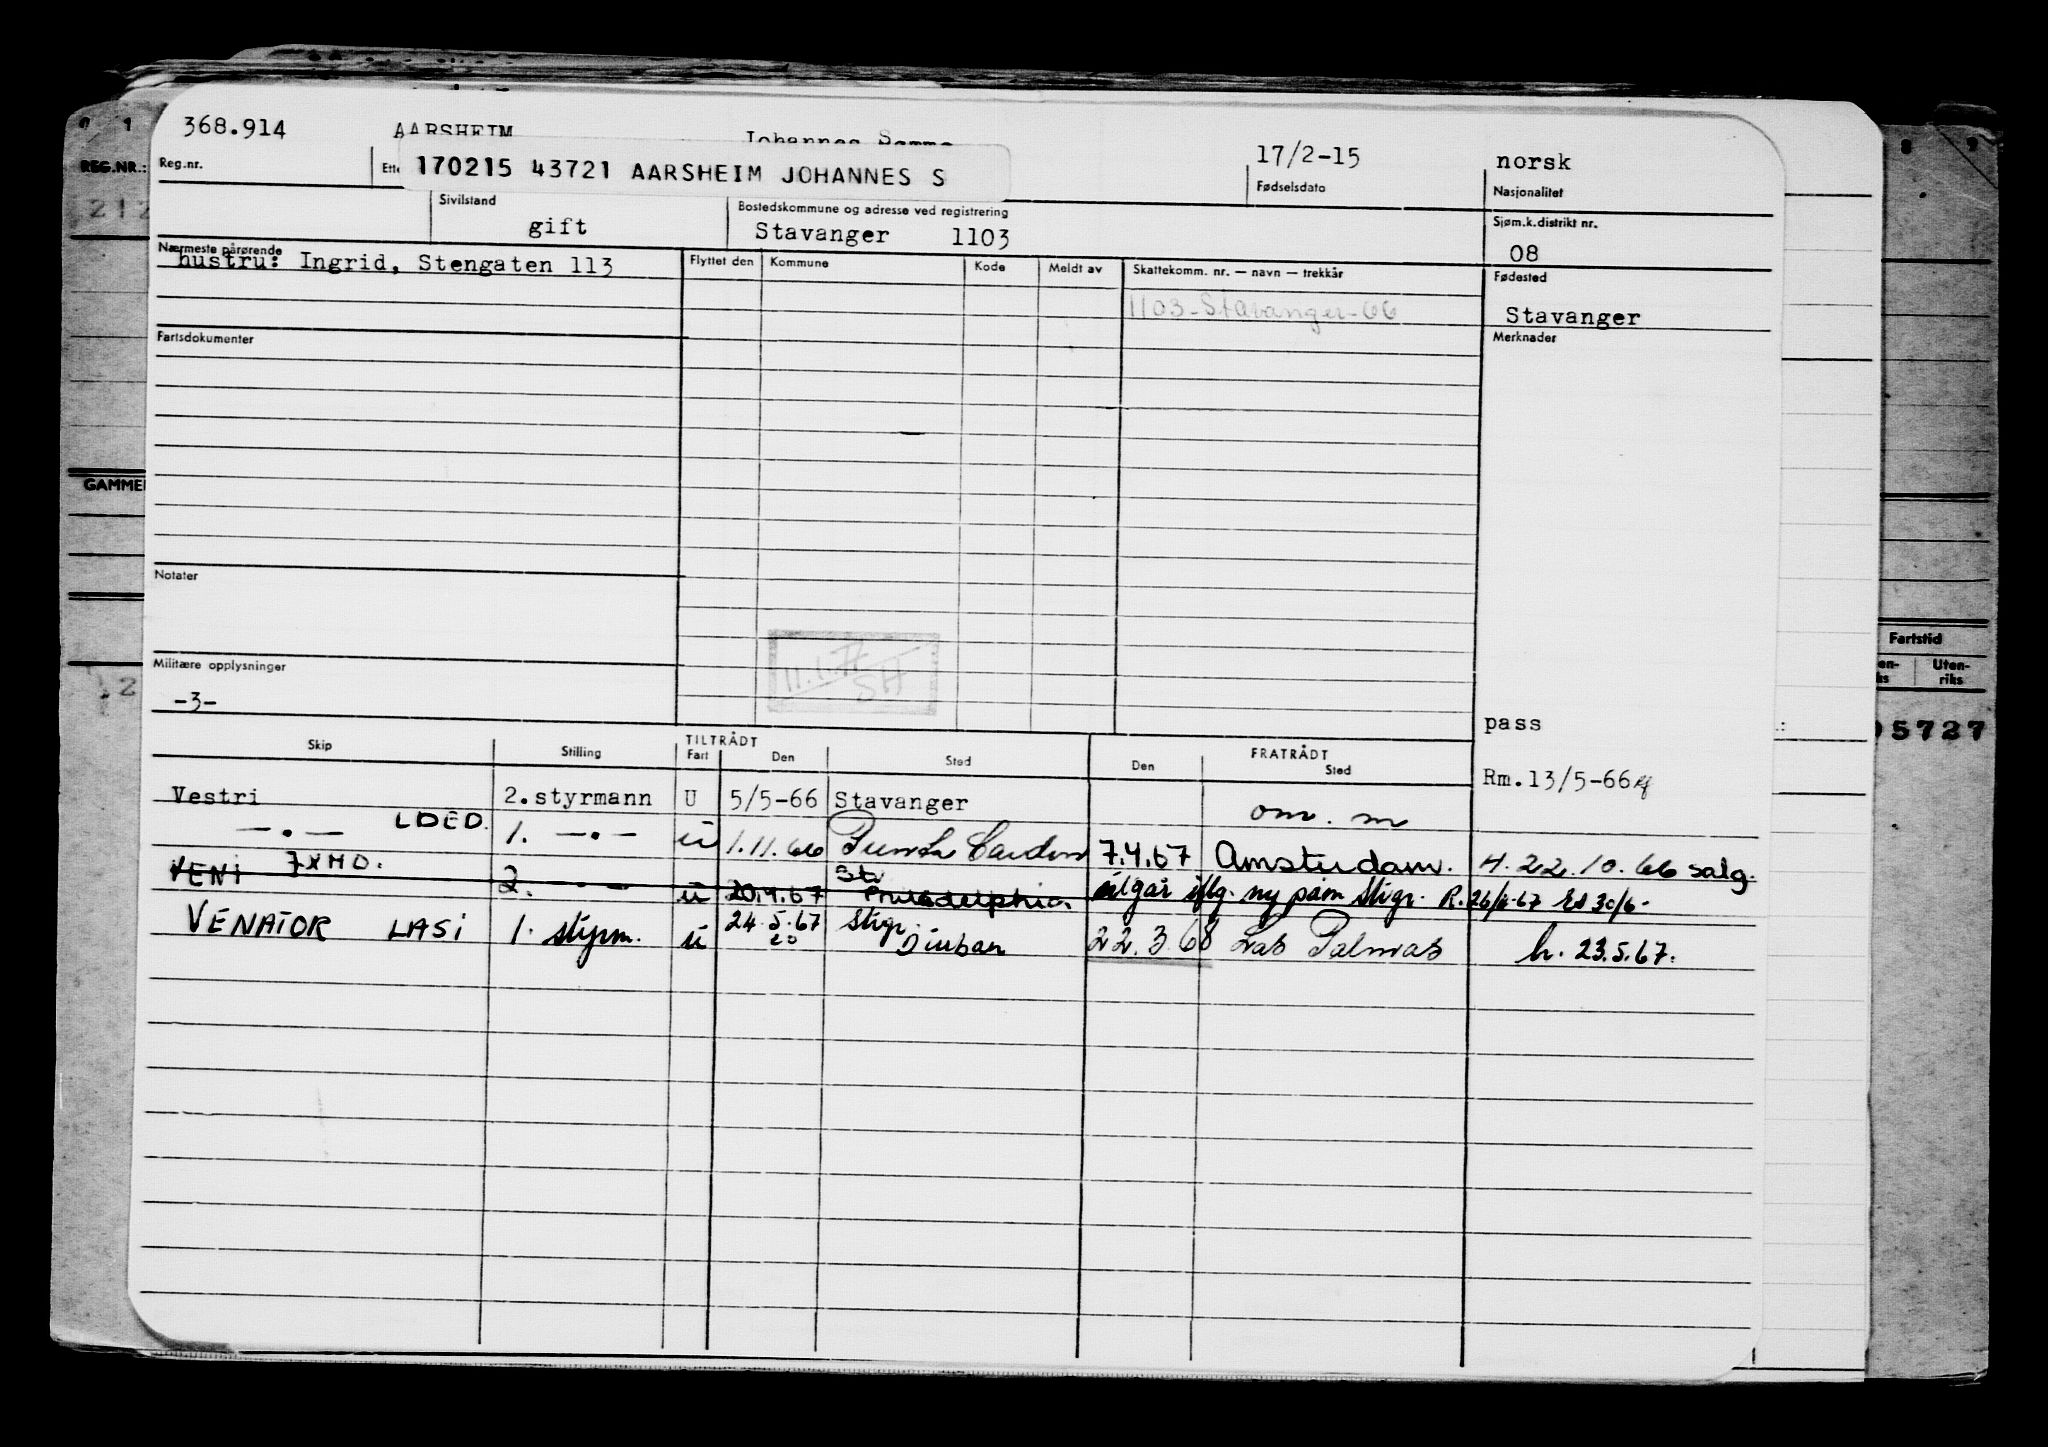 368.914 AARSHEIM Johannes 17/2-15 norsk
REG.NR.: Reg.nr. 170215 43721 AARSHEIM JOHANNES S Fødselsdato Nasjonalitet
Sivilstand Bostedskommune og adresse ved registrering Sjøm.k.distrikt nr.
gift Stavanger 1103 08
Nærmeste pårørende Flyttet den Kommune Kode Meldt av Skattekomm. nr. — navn — trekkår Fødested
hustru: Ingrid, Stengaten 113
1103-Stavanger-66 Stavanger
Fartsdokumenter Merknader
GAMMEL
Notater
Fartstid
Uten-
riks
Militære opplysninger
-3-
11.1.77
SH
pass
5727
Skip Stilling TILTRÅDT FRATRÅDT
Fart Den Sted Den Sted
Rm.13/5-66
Vestri 2.styrmann U 5/5-66 Stavanger om. m
—.— LDED. 1. —.— u 1.11.66 7.4.67 Amsterdam. H. 22.10.66 salg.
VENI JXHD. 2. —— u 20.4.67 Philadelphia utgår iflg. ny påm Stvgr. R.26/6-67 30/6-
VENATOR LASI 1. styrm. u 24.5.67 Stvgr. Durban 22.3.68 Las Palmas h. 23.5.67.